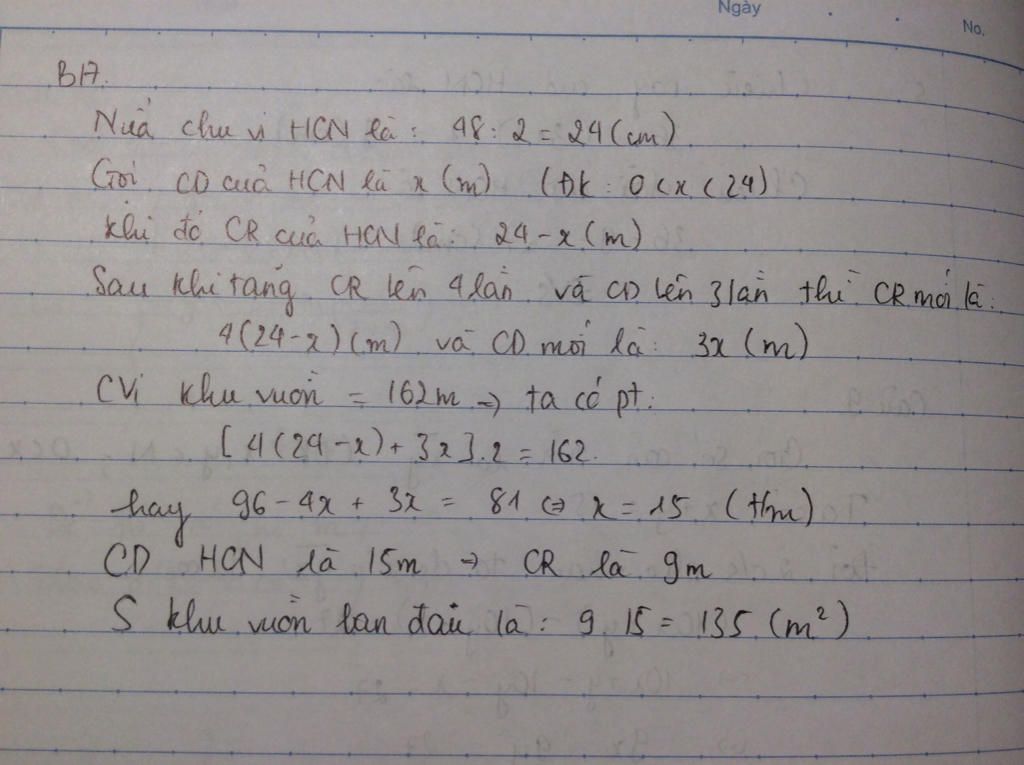 Ngày
No.
B17.
Nửa chu vi HCN là: 48 : 2 = 24 (cm)
Gọi CD của HCN là x (m) (ĐK: 0 < x < 24)
Khi đó CR của HCN là: 24 - x (m)
Sau khi tăng CR lên 4 lần và CD lên 3 lần thì CR mới là:
4(24 - x) (m) và CD mới là: 3x (m)
CVi khu vườn = 162m → ta có pt:
[4(24 - x) + 3x].2 = 162.
hay 96 - 4x + 3x = 81 ⇔ x = 15 (t/m)
CD HCN là 15m → CR là 9m
S khu vườn ban đầu là: 9 15 = 135 (m²)